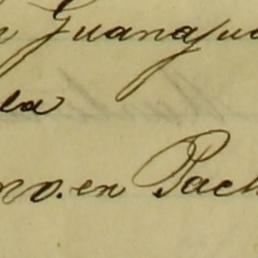 n Guanajua
la
no. en Pach